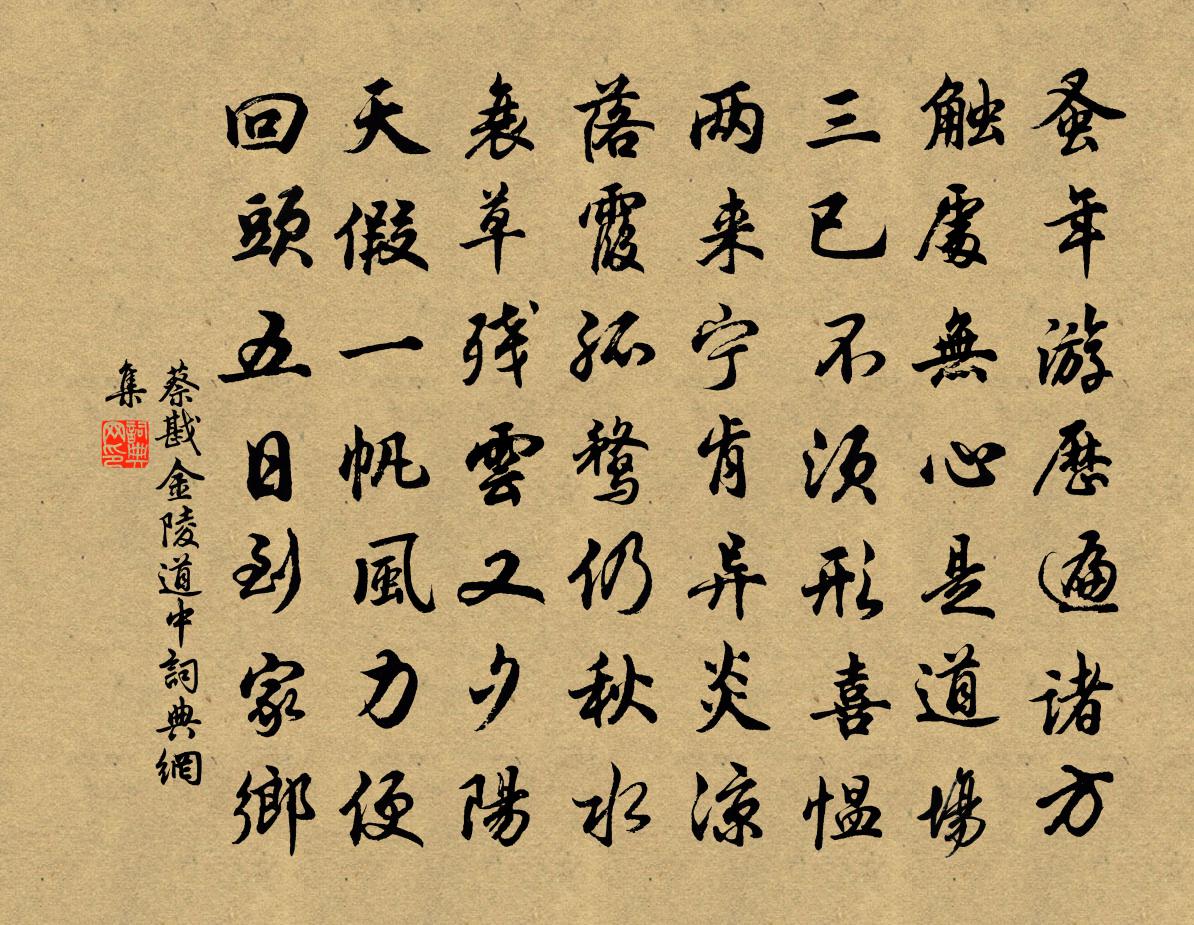 蚤年游歷遍諸方
触處無心是道場
三已不須形喜愠
两来宁肯异炎凉
落霞孤鶩仍秋水
衰草残雲又夕陽
天假一帆風力便
回頭五日到家鄉
蔡戡金陵道中詞典網
集
詞典
网印